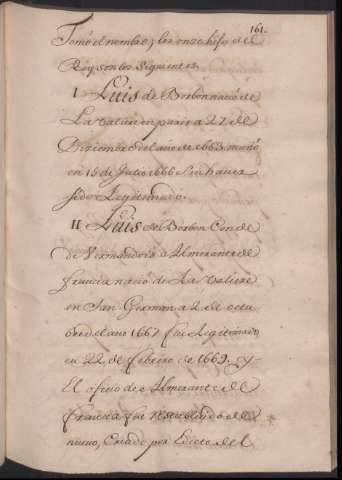 161.
Tomó el nombre; los onze hijos del
Rey, son los siguientes.
I Luis de Borbon nacio de
La Valier en paris a 27 de
Diziembre del año de 1663. murió
en 15 de Julio 1666 sin haver
sido Legitimado.
II Luis de Borbon Conde
de Vermandois Almirante de
francia nacio de La Valiere
en San German a 2 de octu
bre del año 1667 fue Legitimado
en 22 de febrero de 1669. y
El oficio de Almirante de
francia fue restablecido de
nuevo, Creado por Edicto del